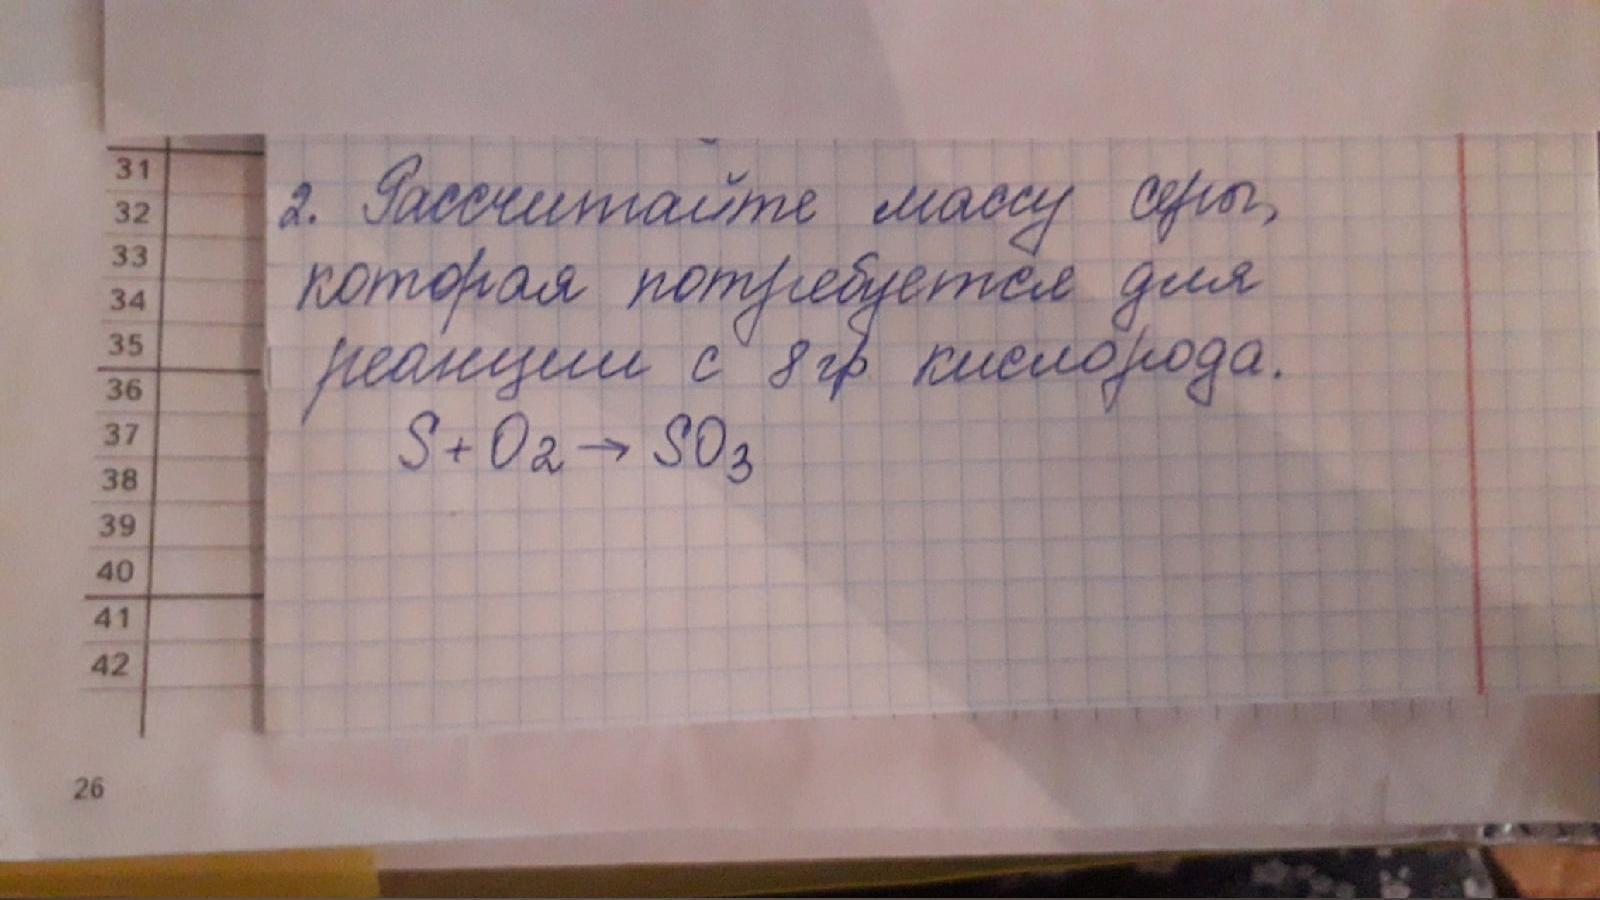 31
32
33
34
35
36
37
38
39
40
41
42
2. Рассчитайте массу серы,
которая потребуется для
реакции с 8 гр кислорода.
S + O₂ → SO₃
26